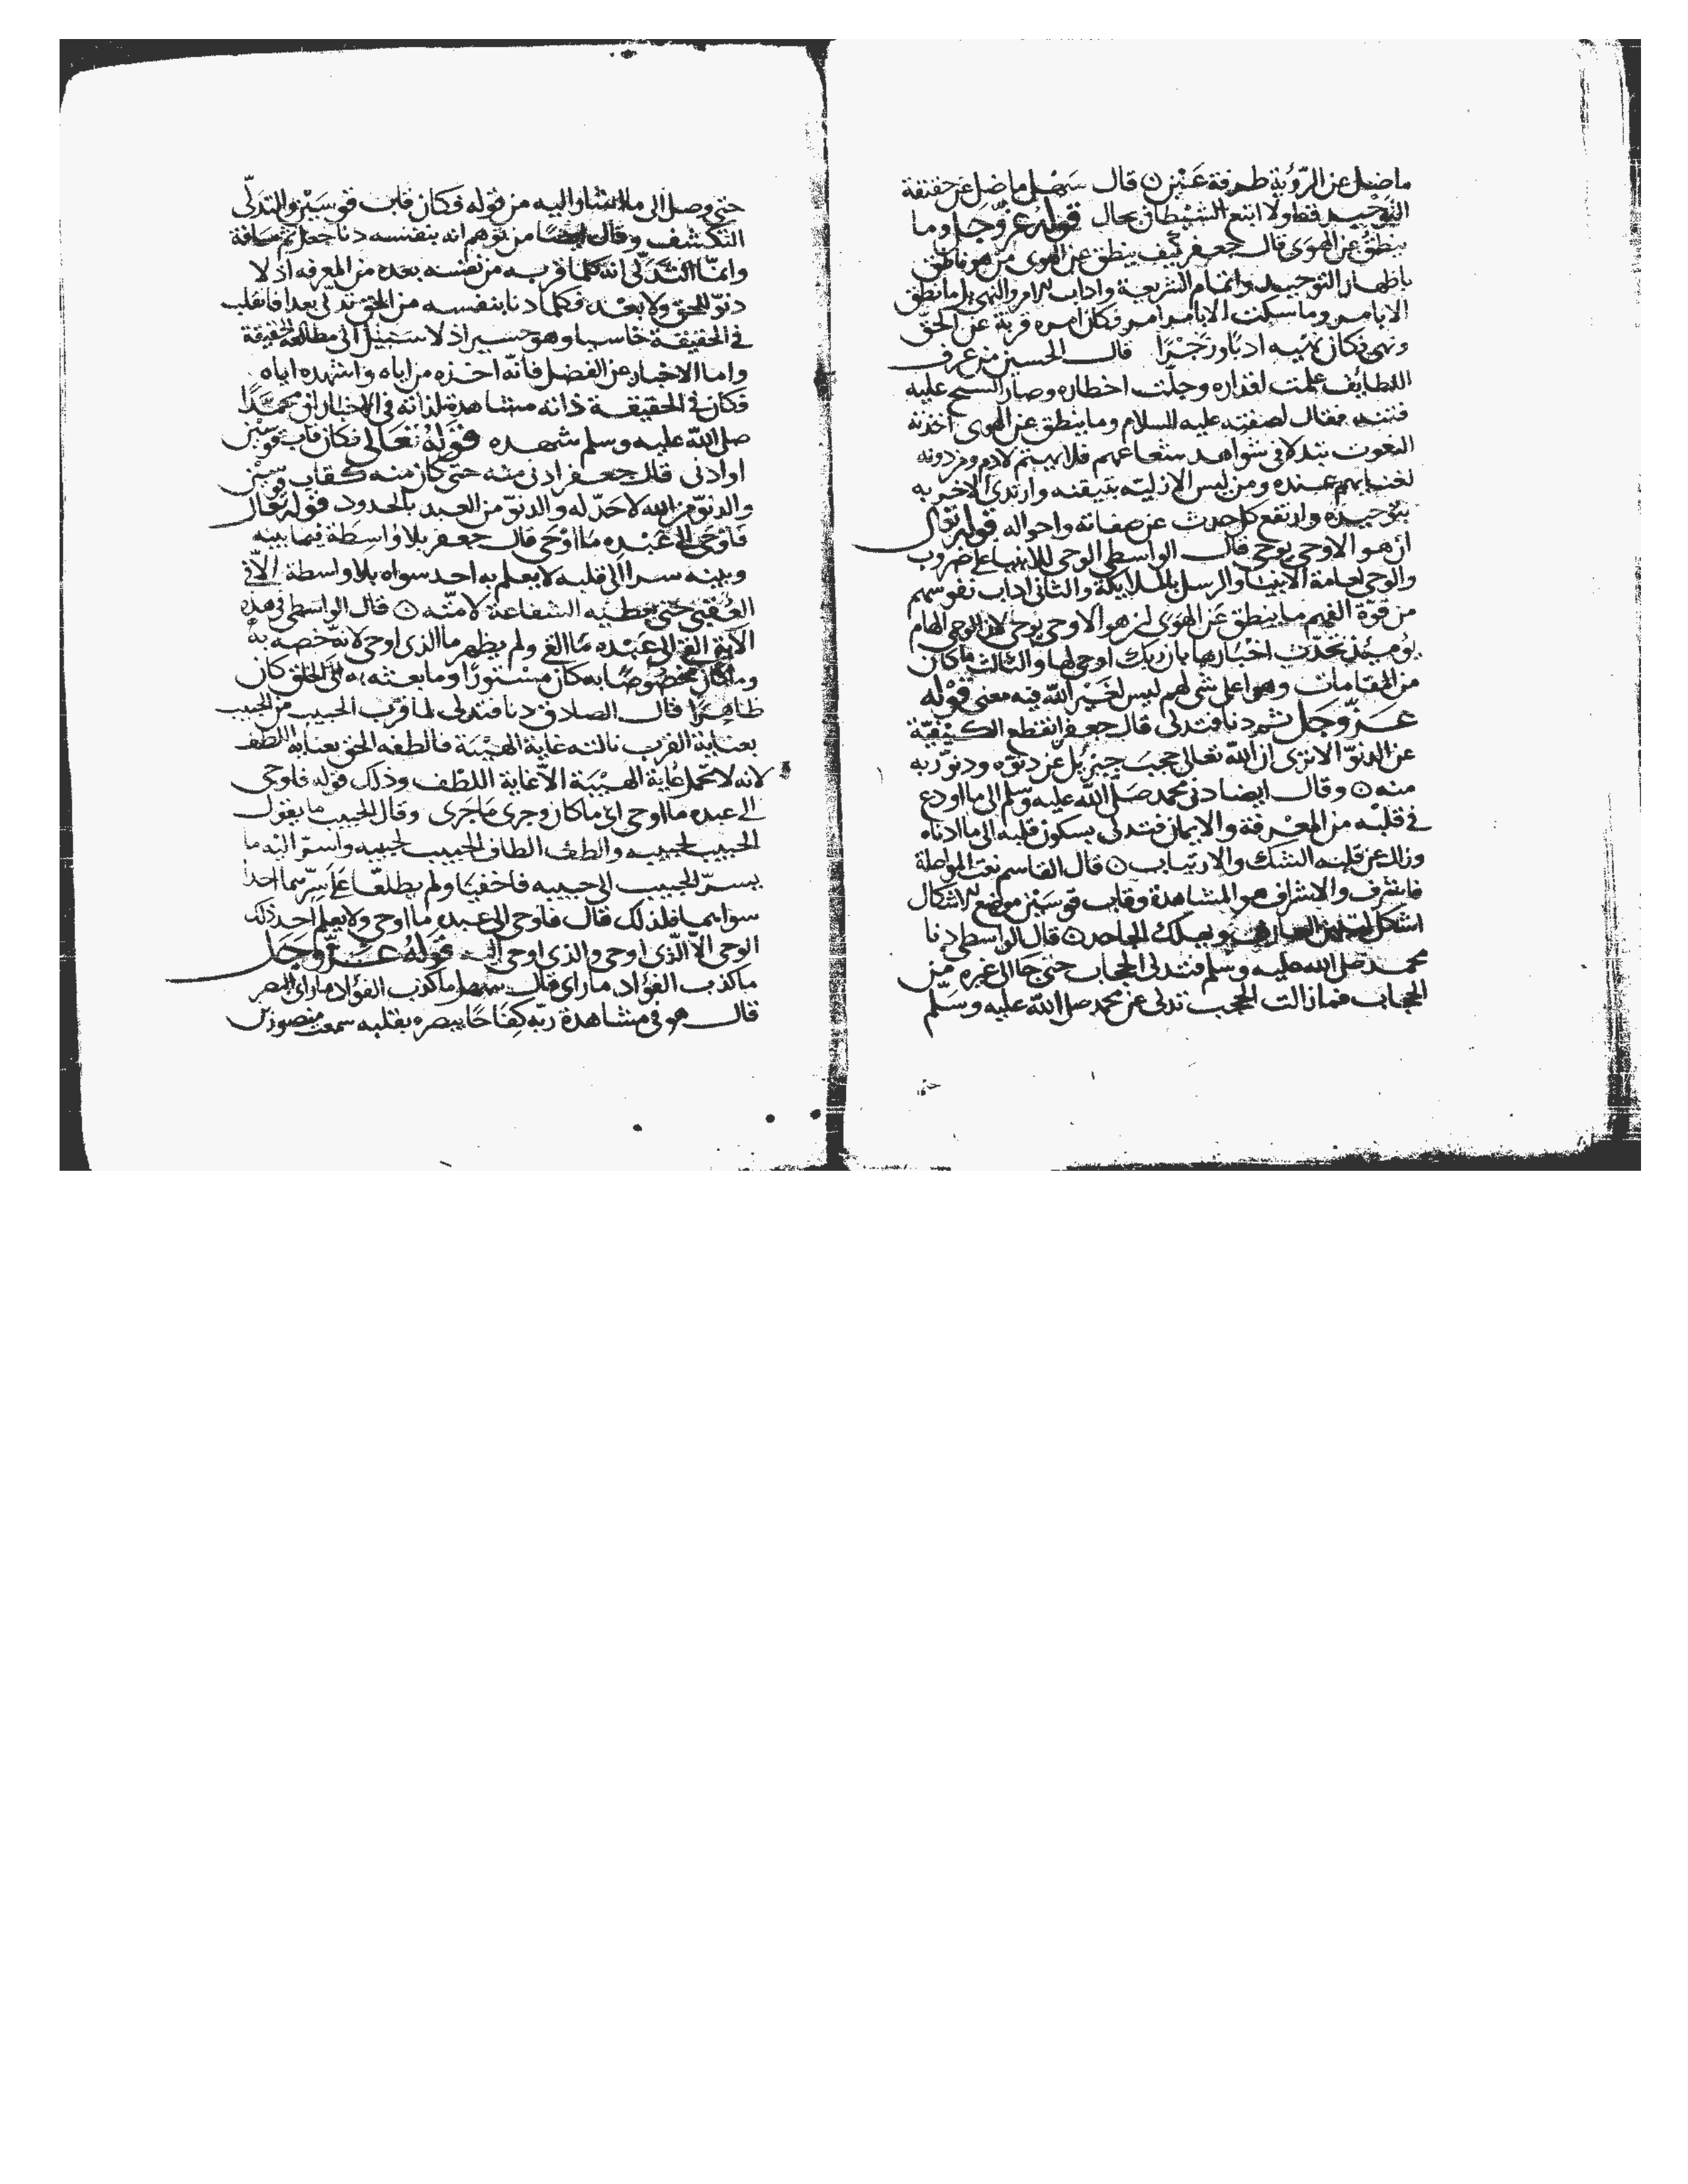 ما ضل عن الرؤية طرفة عين ن قال سهل ما ضل عن حقيقة
التوحيد قط ولا اتبع الشيطان بحال قوله عز وجل وما
ينطق عن الهوى قال جعفر كيف ينطق عن الهوى من هو ناطق
باظهار التوحيد واتمام الشريعة واداب الامر والنهي بل ما نطق
الا بامر وما سكت الا بامر امر فكان امره قربة عن الحق
ونهى فكان نهيه ادبا وزجرا قال الحسين من عرف
اللطايف علمت اقداره وجلت اخطاره وصار السبح عليه
فتنة فقال لصفيه عليه السلام وما ينطق عن الهوى اخذته
النعوت شواهد شعاعهم ومن دونه
عنده ومن لبس الازلية وارتدى الاخر به
بتوحيده وارتفع كل حدث عن صفاته واحواله قوله تعالى
ان هو الا وحي يوحى قال الواسطي الوحي للانبيا على ضروب
والوحي لعامة الانبيا والرسل بالملايكة والثاني اداب نفوسهم
من قوة الفهم ما ينطق عن الهوى ان هو الا وحي يوحى لان الوحي الهام
يومئذ تحدث اخبارها بان ربك اوحى لها والثالث ما كان
من المقامات وهو اعلى شي لهم ليس لغير الله فيه معنى قوله
عز وجل ثم دنا فتدلى قال جعفر انقطع الكيفية
عن الدنو الا ترى ان الله تعالى حجب جبرئيل عن دنوه ودنو ربه
منه ن وقال ايضا دنى محمد صلى الله عليه وسلم الى ما اودع
في قلبه من المعرفة والايمان فتدلى بسكون قلبه الى ما ادناه
وزال عن قلبه الشك والارتياب ن قال القاسم نعت المواصلة
والاشراف هو المشاهدة وقاب قوسين موضع الاشكال
اشكل ن قال الواسطي دنا
محمد صلى الله عليه وسلم فتدلى الحجاب حتى جا الى غيره من
الحجاب فما زالت الحجب تدلى عن محمد صلى الله عليه وسلم
حتى وصل الى ما اشار اليه من قوله فكان قاب قوسين والتدلى
التكشف وقال ايضا من توهم انه بنفسه دنا جعل ثم مسافة
وانما التدلى انه كلما قرب من نفسه بعده من المعرفه اذ لا
دنو للحق ولا بعد فكلما دنا بنفسه من الحق تدلى بعدا فانقلب
في الحقيقة خاسيا وهو حسير اذ لا سبيل الى مطالعة الحقيقة
واما الاخبار عن الفضل فانه اخذه من اياه واشهده اياه
فكان في الحقيقة ذاته مشاهدة لذاته في الاخبار ان محمدا
صلى الله عليه وسلم شهده قوله تعالى فكان قاب قوسين
او ادنى قال جعفر ادنى منه حتى كان منه كقاب قوسين
والدنو من الله لا حد له والدنو من العبد بالحدود قوله تعالى
فاوحى الى عبده ما اوحى قال جعفر بلا واسطة فيما بينه
وبينه سرا الى قلبه لا يعلم به احد سواه بلا واسطة الا في
العقبى حتى يعطيه الشفاعة لامته ن قال الواسطي في هذه
الاية القى الى عبده ما القى ولم يظهر ما الذي اوحى لانه خصه به
وما كان مخصوصا به كان مستورا وما بعثه به الى الخلق كان
ظاهرا قال الصادق دنا فتدلى لما قرب الحبيب من الحبيب
بعناية القرب نالته غاية الهيبة فالطفه الحق بعناية اللطف
لانه لا تحمل غاية الهيبة الا غاية اللطف وذلك قوله فاوحى
الى عبده ما اوحى اي ما كان وجرى ما جرى وقال الحبيب ما يقول
الحبيب لحبيبه والطف الطاف الحبيب لحبيبه واسر اليه ما
يسر الحبيب الى حبيبه فاخفيا ولم يطلعا على سرهما احدا
سواهما فلذلك قال فاوحى الى عبده ما اوحى ولا يعلم احد ذلك
الوحي الا الذي اوحى والذي اوحى اليه قوله عز وجل
ما كذب الفؤاد ما راى قال سهل ما كذب الفؤاد ما راى البصر
قال هو في مشاهدة ربه كفاحا ببصره بقلبه سمعت منصور بن